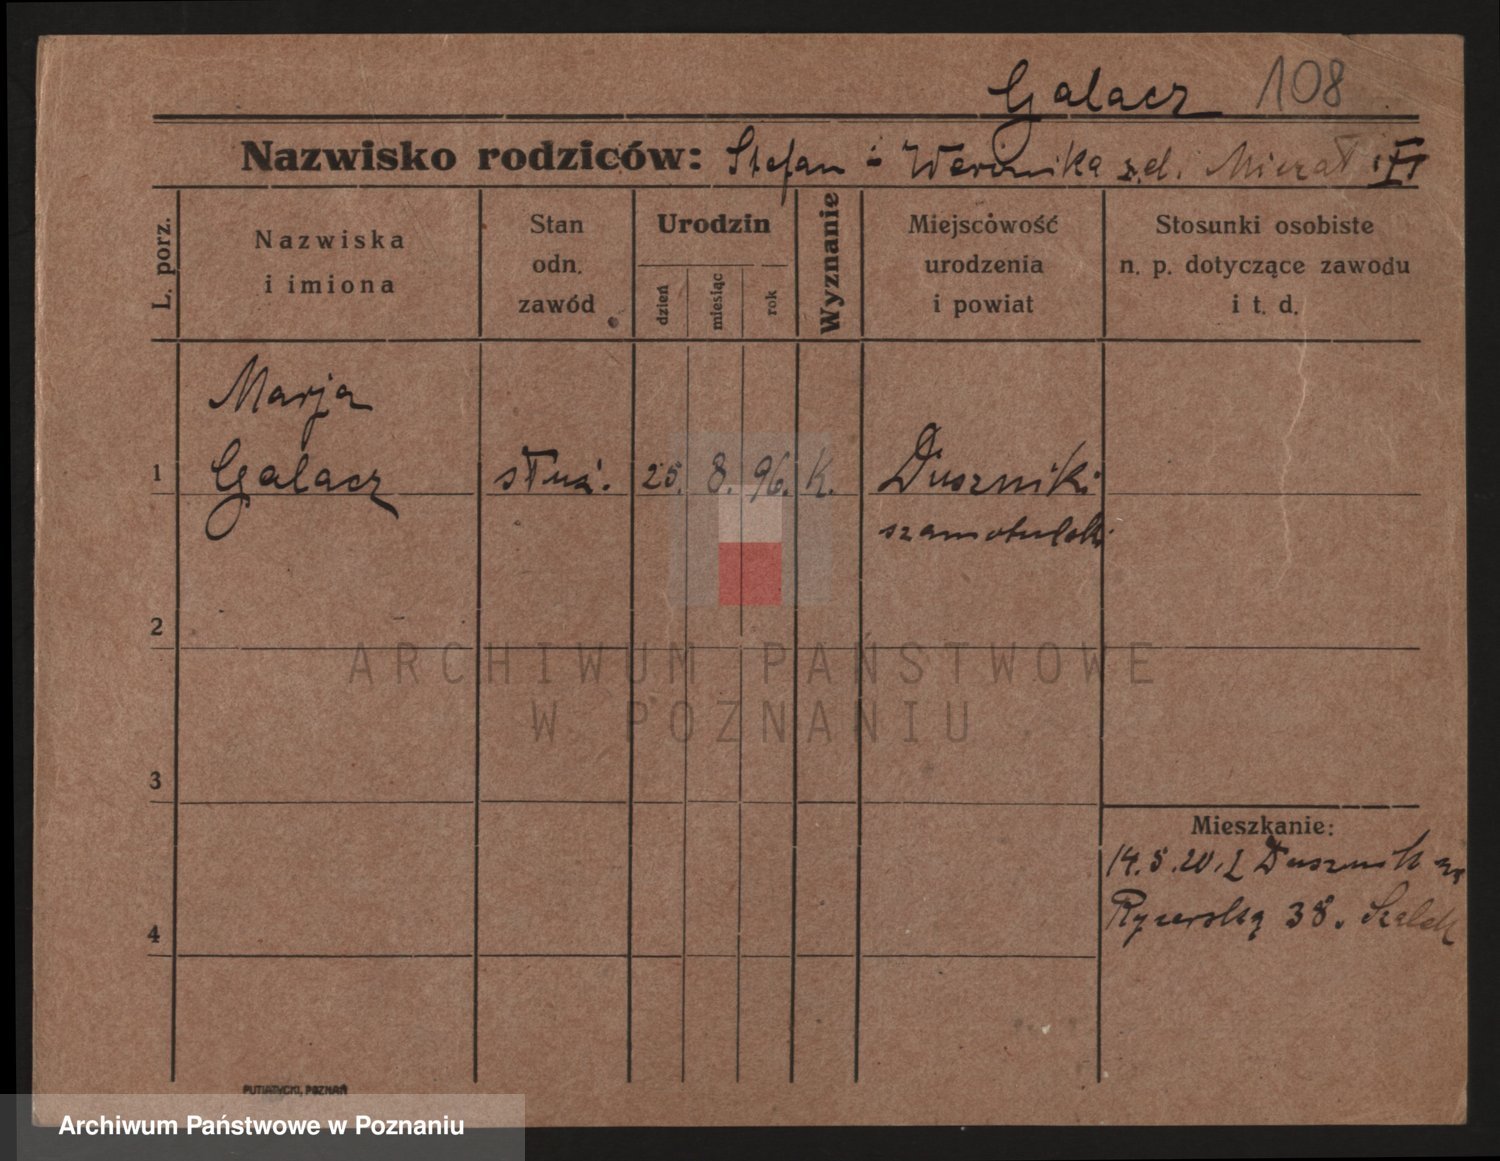 Galacz 108
Nazwisko rodziców: Stefan i Weronika z d.
L. porz.
Nazwiska
i imiona
Stan
odn.
zawód
Urodzin
dzień
miesiąc
rok
Wyznanie
Miejscowość
urodzenia
i powiat
Stosunki osobiste
n. p. dotyczące zawodu
i t. d.
Marja
1 Galacz służ. 25. 8. 96. K. Duszniki
szamotulski
2
3
4
Mieszkanie:
14.5.20. z Dusznik na
Rycerską 38.
ARCHIWUM PAŃSTWOWE
W POZNANIU
PUTIATYCKI, POZNAŃ
Archiwum Państwowe w Poznaniu